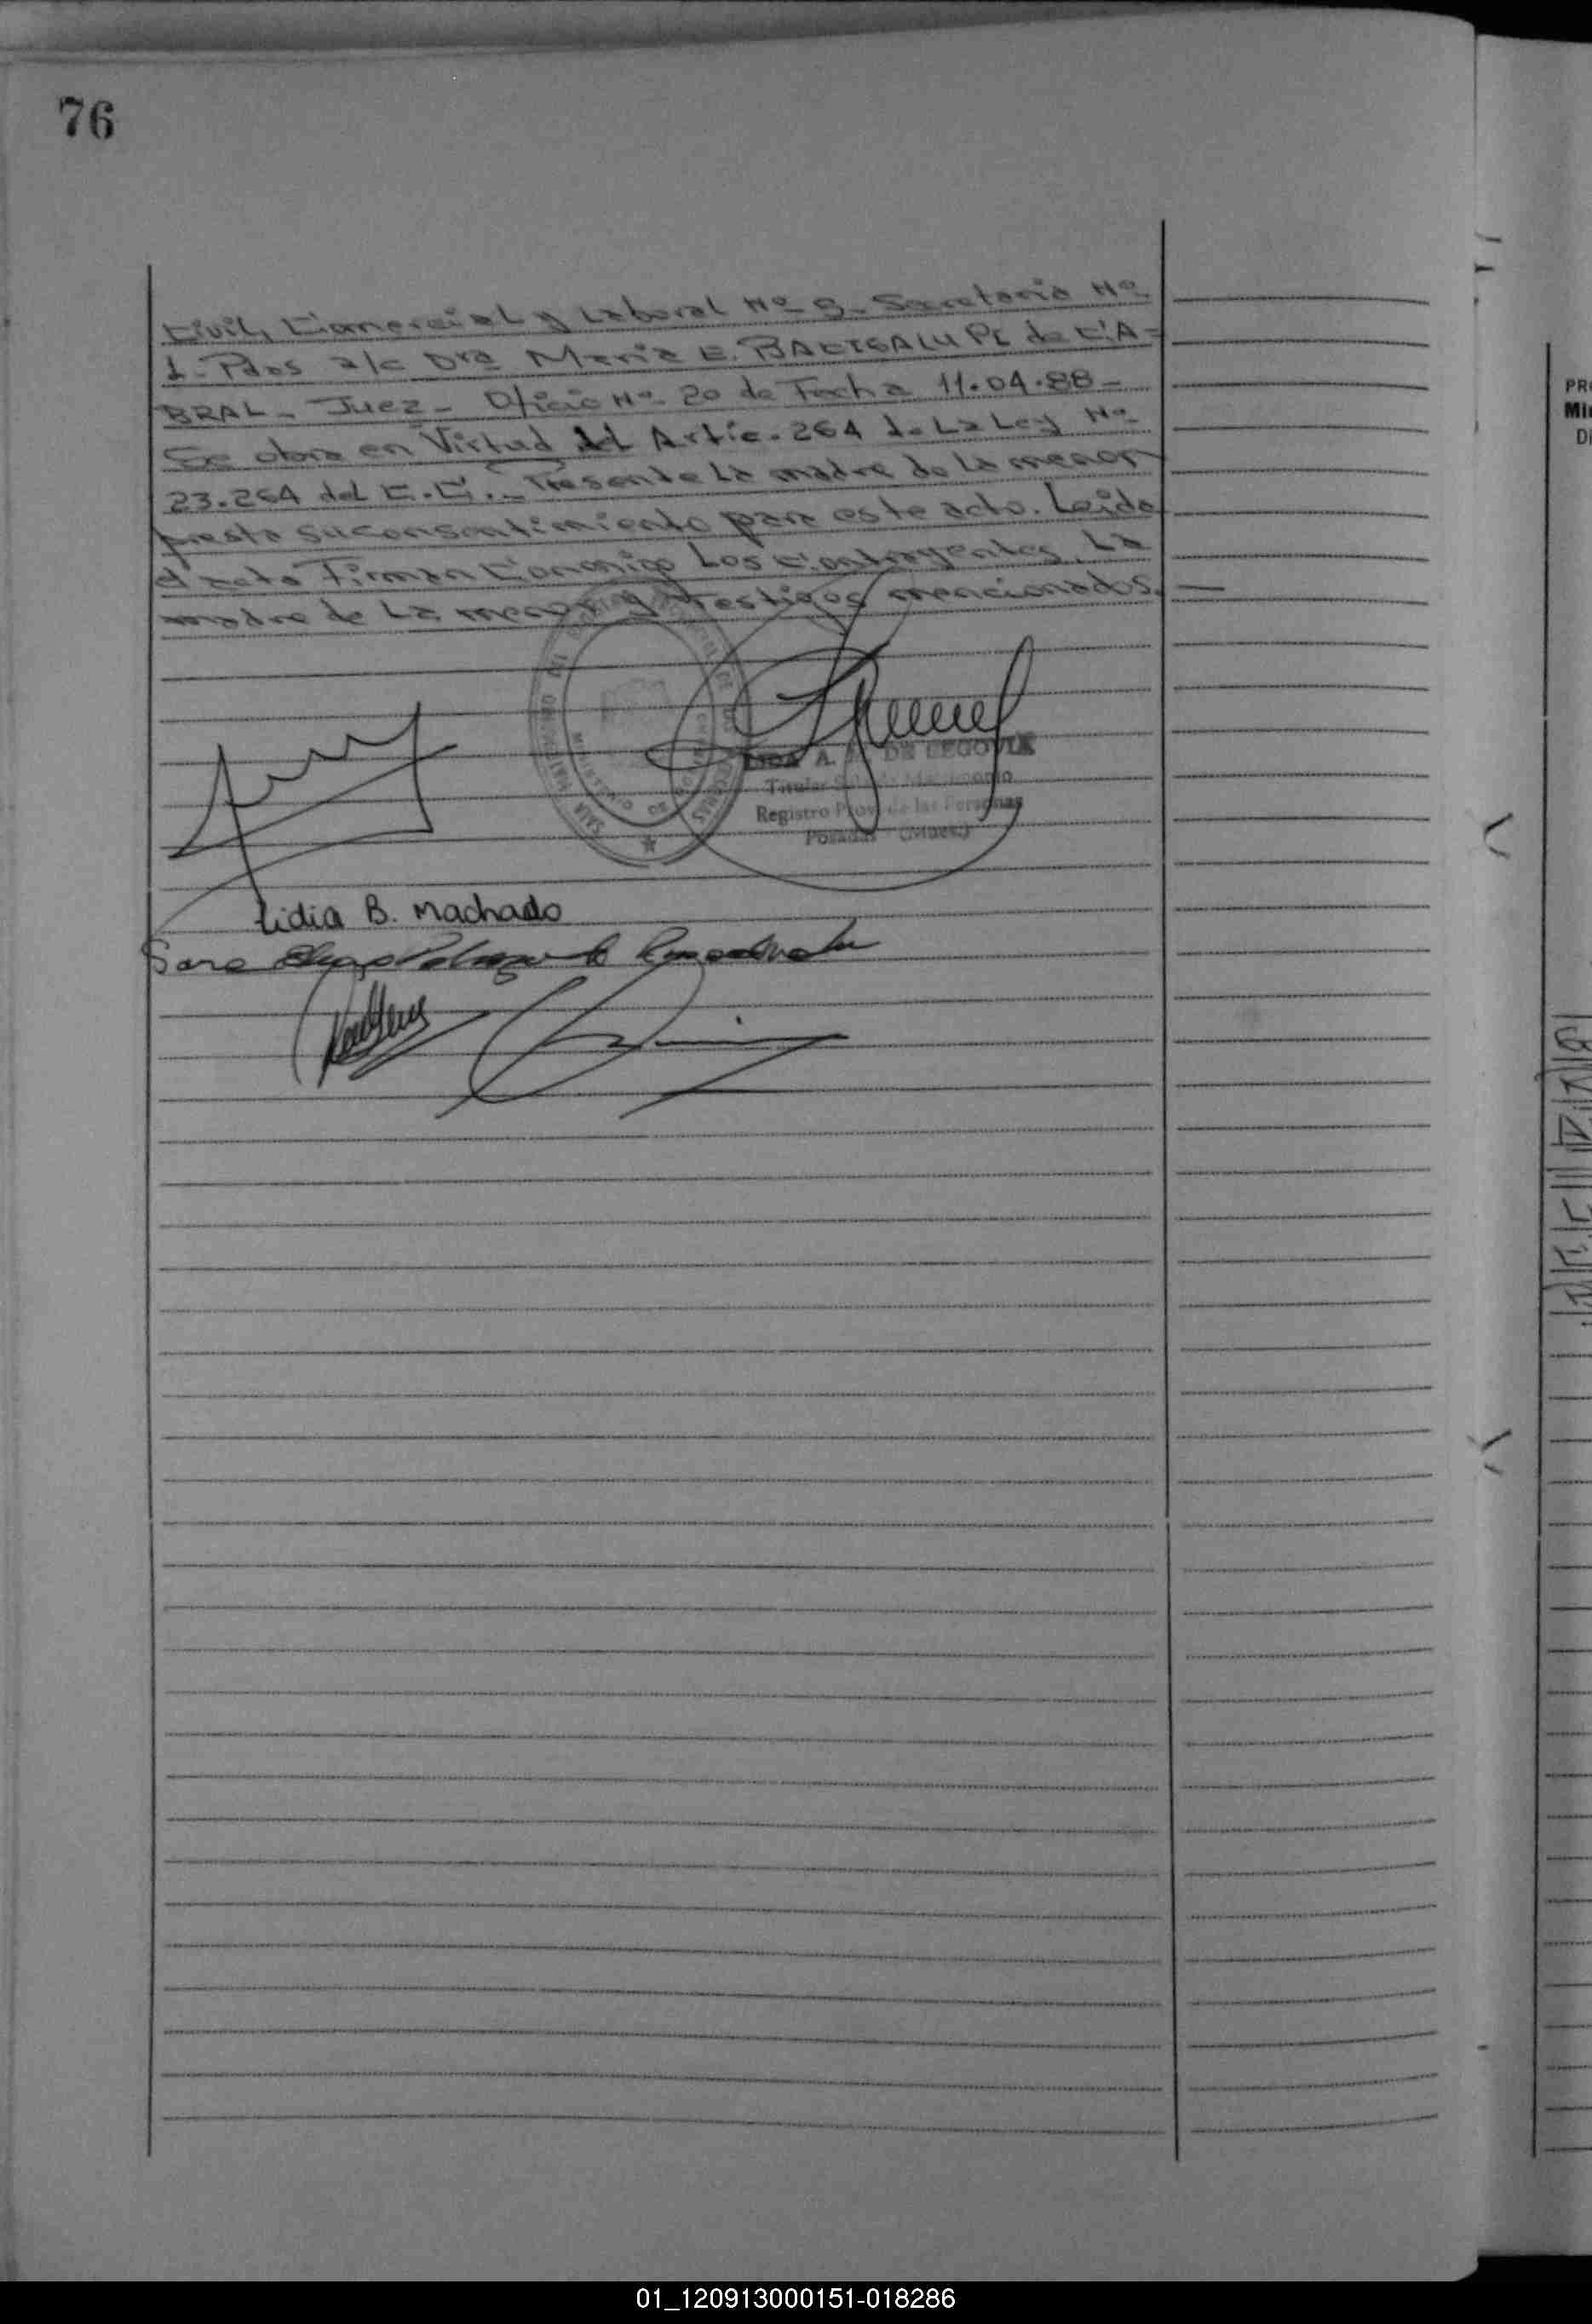 76
Civil, Comercial y Laboral Nº 9. Secretaria Nº
1- Pdas a/c Dra Maria E. BACIGALUPI de CA=
BRAL- Juez- Oficio Nº 20 de Fecha 11.04.88-
Se obra en Virtud del Artic. 264 de La Ley Nº
23.264 del C.C.- Presente La madre de La menor
presta su consentimiento para este acto. Leida
el acta Firman Conmigo Los Contrayentes, La
madre de La menor y Testigos mencionados.
A. DE SEGOVIA
Titular Sala de Matrimonio
Registro Prov. de las Personas
Posadas (Mnes.)
Lidia B. Machado
Sara
PR
Mi
Di
01_120913000151-018286